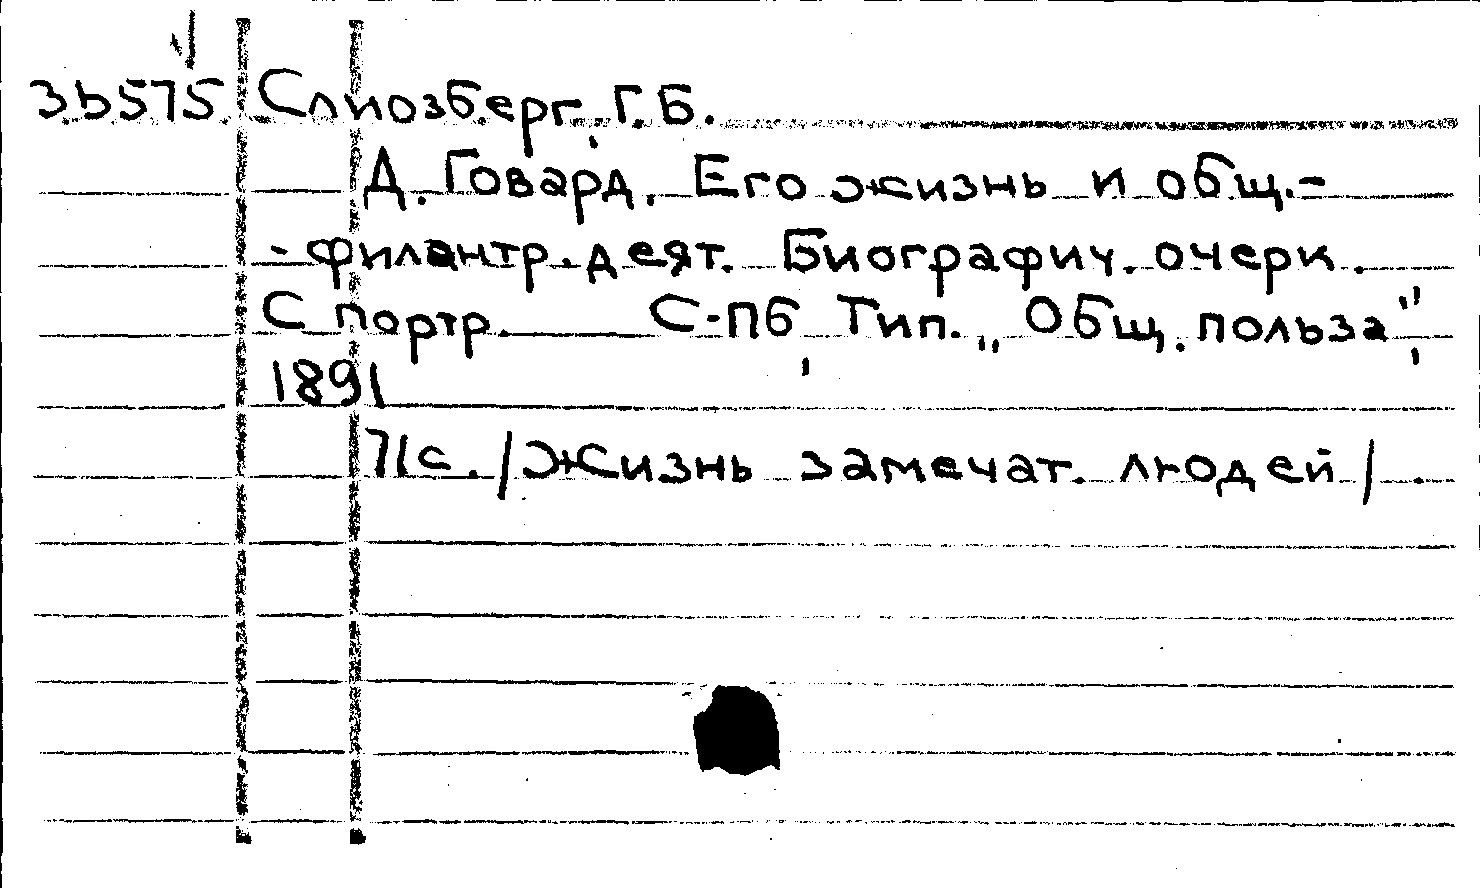 3b575 Слиозберг, Г.Б.
Д. Говард. Его жизнь и общ.-
-филантр. деят. Биографич. очерк.
С портр. С-Пб, Тип. „Общ. польза",
1891
71с. /Жизнь замечат. людей/.